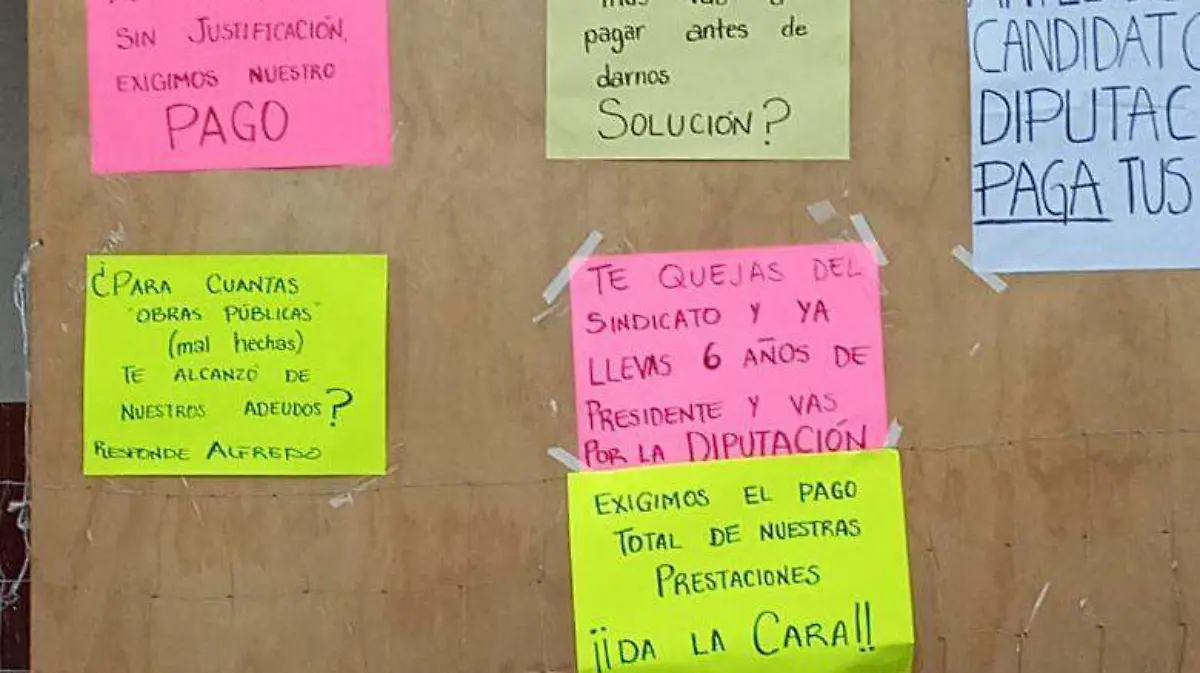 SIN JUSTIFICACIÓN,
EXIGIMOS NUESTRO
PAGO
pagar antes de
darnos
SOLUCIÓN?
CANDIDATO
DIPUTAC
PAGA TUS
¿PARA CUANTAS
"OBRAS PÚBLICAS"
(mal hechas)
TE ALCANZÓ DE
NUESTROS ADEUDOS?
RESPONDE ALFREDO
TE QUEJAS DEL
SINDICATO Y YA
LLEVAS 6 AÑOS DE
PRESIDENTE Y VAS
POR LA DIPUTACIÓN
EXIGIMOS EL PAGO
TOTAL DE NUESTRAS
PRESTACIONES
¡¡DA LA CARA!!